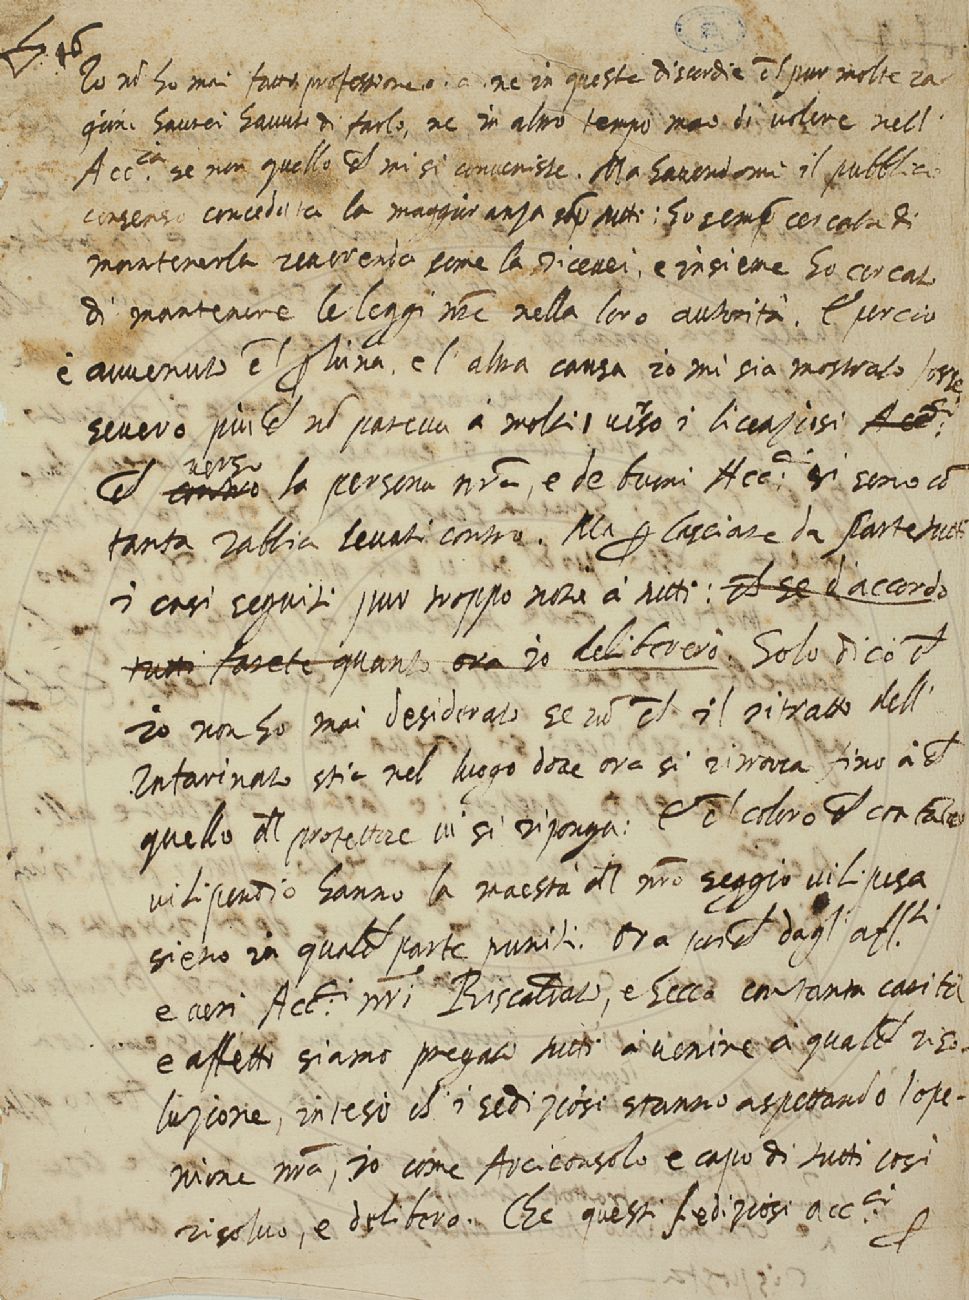 46
Io nõ ho mai fatto professione ne in queste discordie ch̃ pur molte ra
gioni haurei hauuto di farlo, ne in altro tempo mao di volere nell'
Acc.ia se non quello ch̃ mi si conuenisse. Ma hauendomi il pubblico
consenso conceduta la maggioranza sop̃ tutti: ho semp̃ cercato di
mantenerla reuerenda come la riceuei, e insieme ho cercato
di mantenere le leggi nr̃e nella loro autorità. E perciò
è auuenuto ch̃ p l'una, e l'altra causa io mi sia mostrato forse
seuero più ch̃ nõ pareua à molti, uerso i licenziosi Acc.ci
ch̃ contro verso la persona nr̃a, e de buoni Acc.ci si sono cõ
tanta rabbia leuati contro. Ma p lasciare da parte tutti
i casi seguiti pur troppo noti à tutti: ch̃ se d'accordo
tutti farete quanto ora io delibererò. Solo dico ch̃
io non ho mai desiderato se nõ ch̃ il ritratto dell'
Infarinato stia nel luogo doue ora si ritroua fino à ch̃
quello del protettore ui si riponga: E ch̃ coloro ch̃ con tanto
uilipendio hanno la maestà del nr̃o seggio uilipesa
sieno in qualch̃ parte puniti. Ora poich̃ dagl' aff.ti
e ueri Acc.ci nr̃i Riscaldato, e Secco con tanta carità
e affetto siamo pregati tutti à uenire à qualch̃ riso-
luzione, inteso ch̃ i sediziosi stanno aspettando l'ope-
nione nr̃a, io come Arciconsolo e capo di tutti così
risoluo, e delibero. Che questi sediziosi Acc.ci p